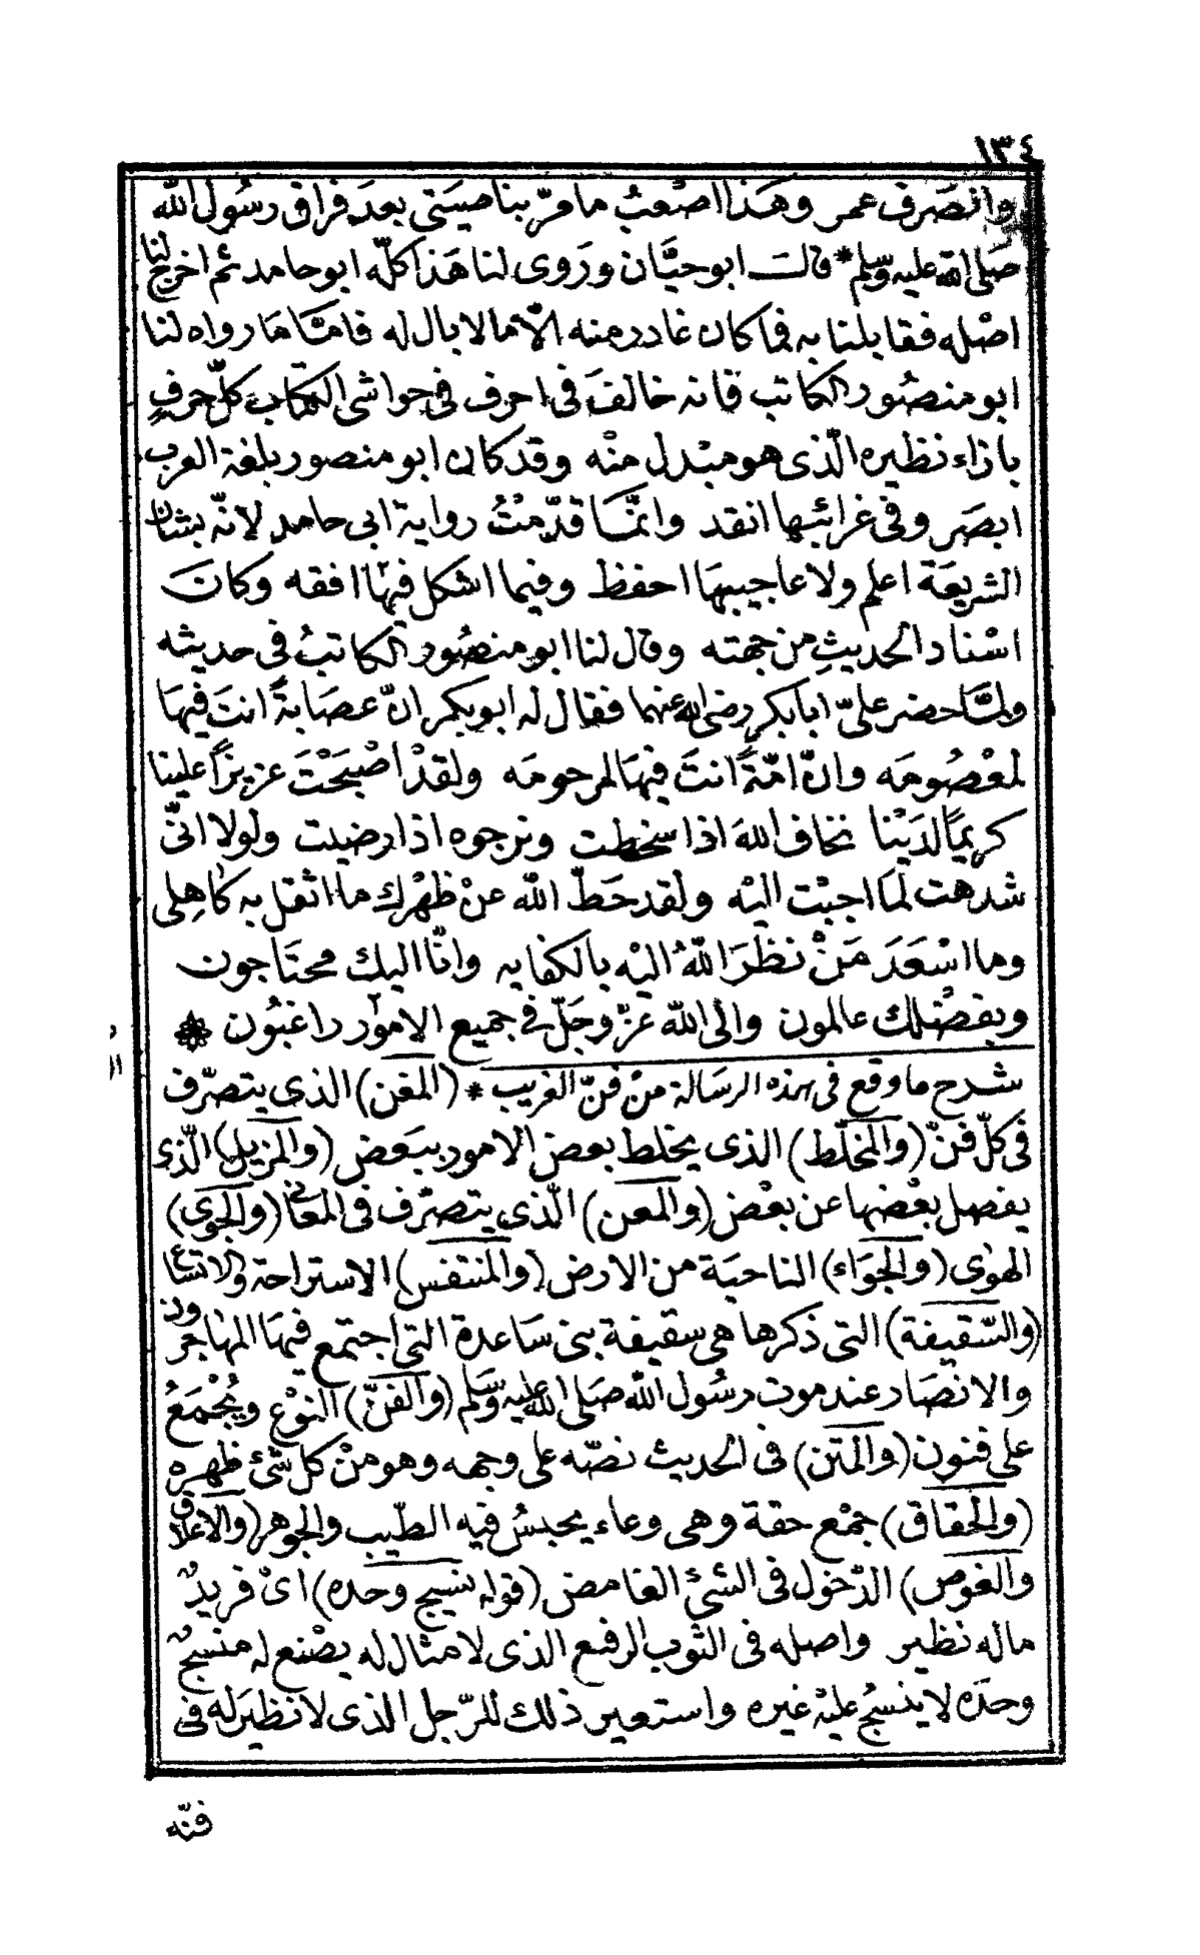 ١٣٤
وانصَرف عمر وهَذا اصْعبُ ما مرّ بناصيَتى بعدَ فراق رسُول الله
صَلى الله عليه وسلم * قالت ابو حيَّان ورَوى لنا هَذا كلّه ابو حامد ثم اخرج لنا
اصْله فقابلنا به فما كان غادر منه الّا ما لا بال له فامَّا مَا رواه لنا
ابو منصُور الكاتب فانه خالفَ فى احرف فى حواشى الكتاب كلّ حرفٍ
بازاء نظيره الّذى هو مبْدل منْه وقد كان ابو منصور بلغة العرب
ابصَر وفى غرائبها انقد وانمَّا قدّمْتُ رواية ابى حامد لانّه بشان
الشريعَة اعلم ولاعاجيبهَا احفظ وفيما اشكل فيهَا افقه وكانَ
اسْناد الحديثِ من جهته وقال لنا ابو منصُور الكاتبُ فى حديثه
ولمَّا حضر علىّ ابا بكر رضى الله عنهما فقال له ابو بكر انّ عصَابةً انتَ فيهَا
لمعْصُومَه وانّ امّةً انتَ فيهَا لمرحومَه ولقدْ اصْبَحْتَ عزيزًا علينا
كريمًا لدَيْنا نخاف اللهَ اذا سخطت ونرجوه اذا رضيت ولولا انّى
شدهت لمَا اجبْت اليْه ولقد حَطّ الله عنْ ظهْرك ما اثقل به كَاهِلى
وما اسْعَدَ مَنْ نظرَ اللهُ اليْه بالكفايه وانّا اليك محتَاجون
وبفضْلك عالمون والى الله عَزّ وجَلّ فى جميع الامُور راغبُون *
شرح ما وقع فى هذه الرسَالة منْ فنّ الغريب * (المفن) الذى يتصرّف
فى كلّ فنّ (والمخلّط) الذى يخلط بعض الامور ببَعض (والمزيل) الّذى
يفصل بعْضها عن بعْض (والمعن) الّذى يتصرّف فى المعانى (والجوى)
الهوٰى (والجوَاء) الناحيَة من الارض (والمتنفس) الاستراحة والاتساع
(والسّقيفة) التى ذكرها هى سقيفة بنى سَاعدة التى اجتمع فيهَا المهَاجرون
والانصَار عند موت رسُول الله صَلى الله عليه وسَلم (والفَنّ) النوْع ويُجْمَعُ
على فنون (والمتن) فى الحديث نصّه على وجهه وهو منْ كل شَئ ظهره
(والحقاق) جمْع حقة وهى وعاء يحبسُ فيه الطّيب والجوهر (والاعلاق
والغوص) الدّخول فى الشئ الغامض (قوله نسيج وحده) اىْ فريدٌ
ماله نظير واصله فى الثوب الرفيع الذى لا مثال له يصْنع له منسجٌ
وحدَه لا ينسجُ عليْه غيره واستعير ذلك للرّجل الذى لا نظيرَ له فى
فنّه